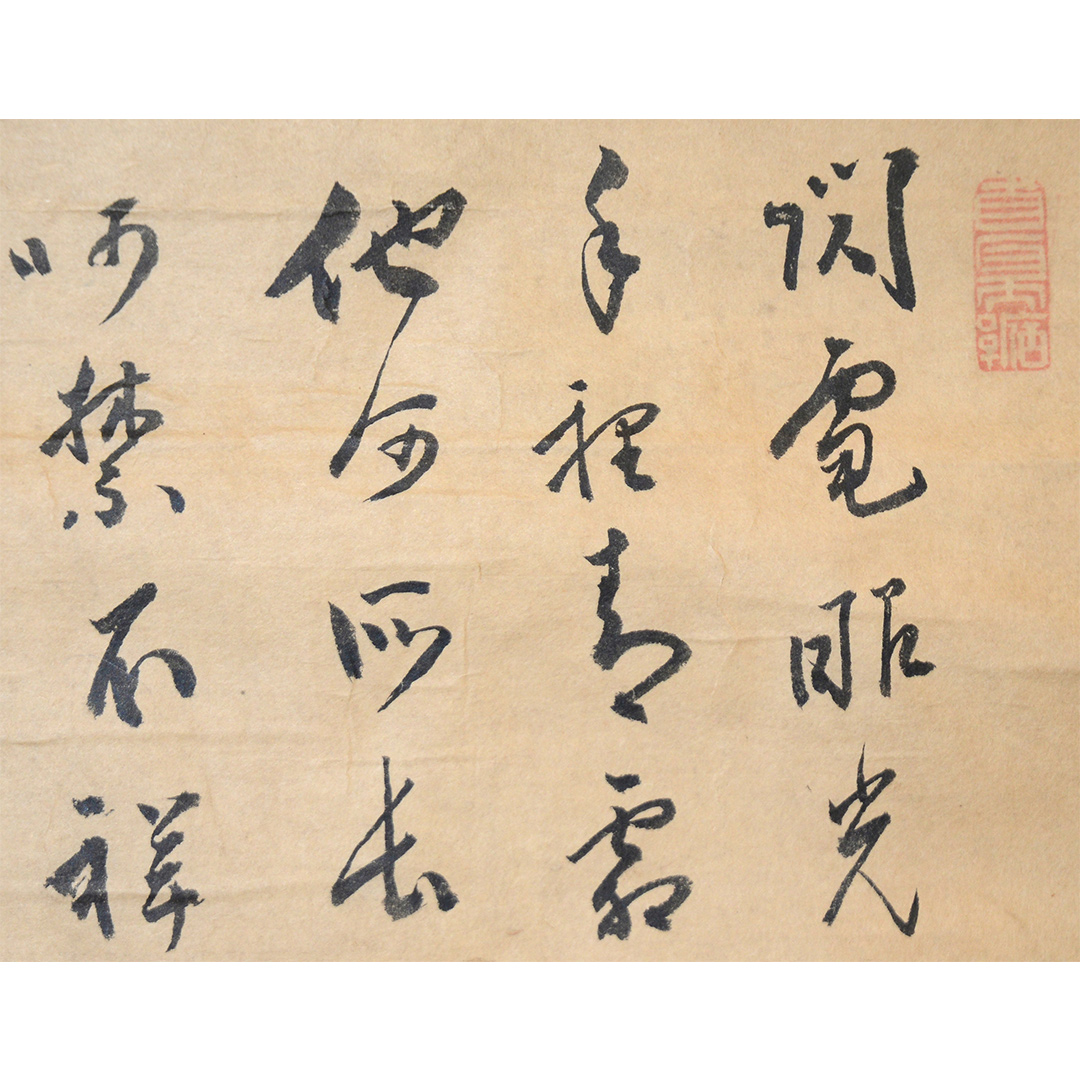 閃電眼光
手裡青霜
他何所長
呵禁不祥